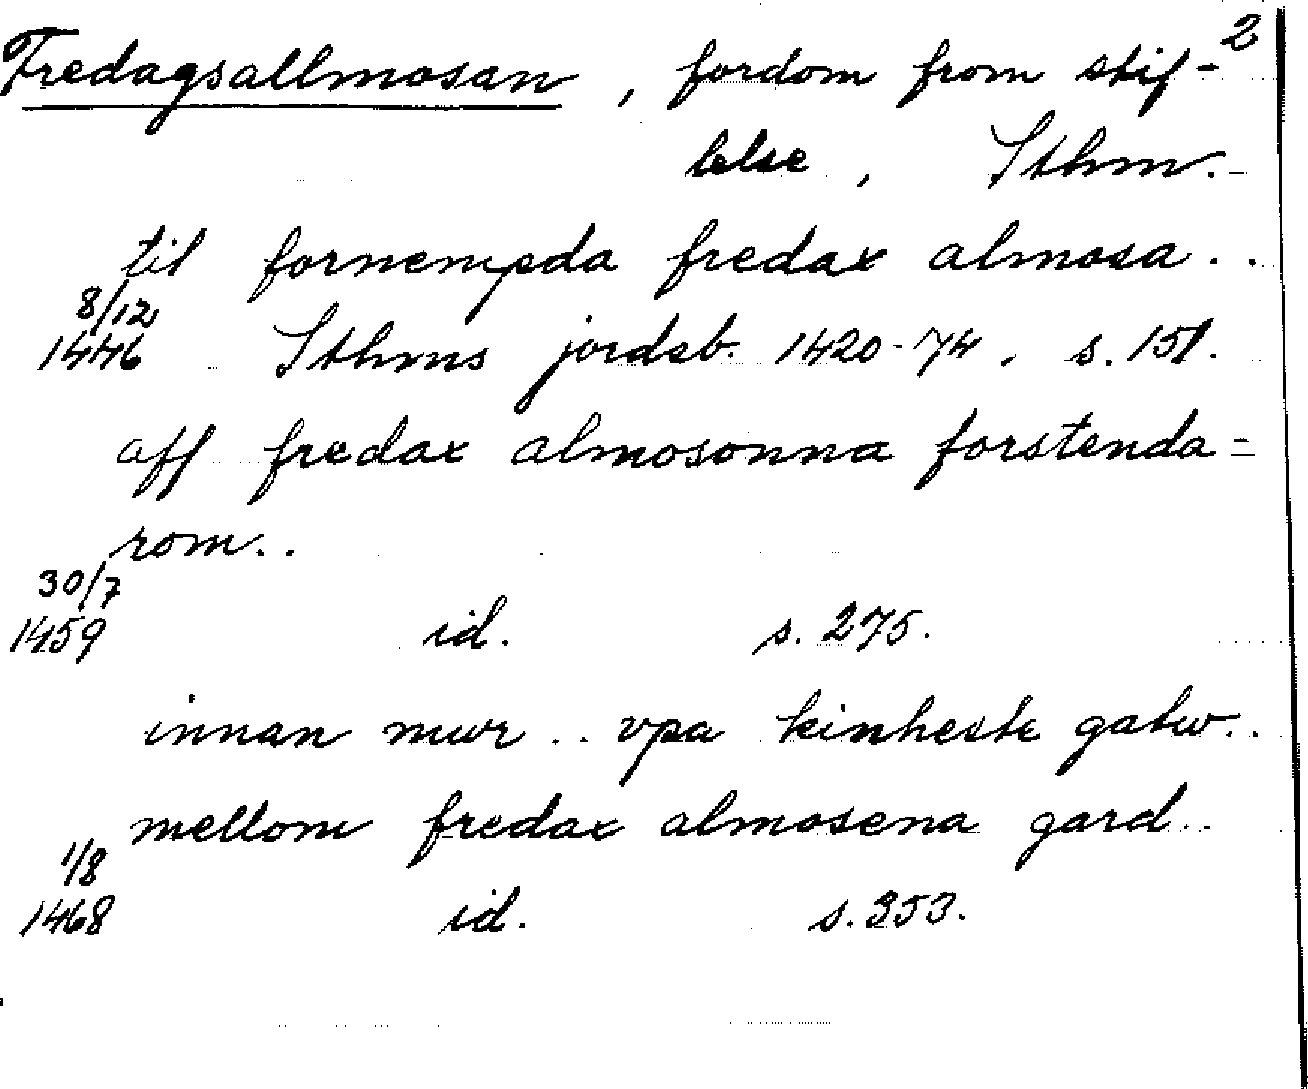 2
Fredagsallmosan, fordom from stif-
telse, Sthm.
til fornempda fredax almosa..
8/12
1446 Sthms jordeb. 1420-74, s. 151.
aff fredax almosonna forstenda=
rom..
30/7
1459 id. s. 275.
innan mwr .. vpa kinheste gatw..
mellom fredax almosena gard..
1/8
1468 id. s. 353.